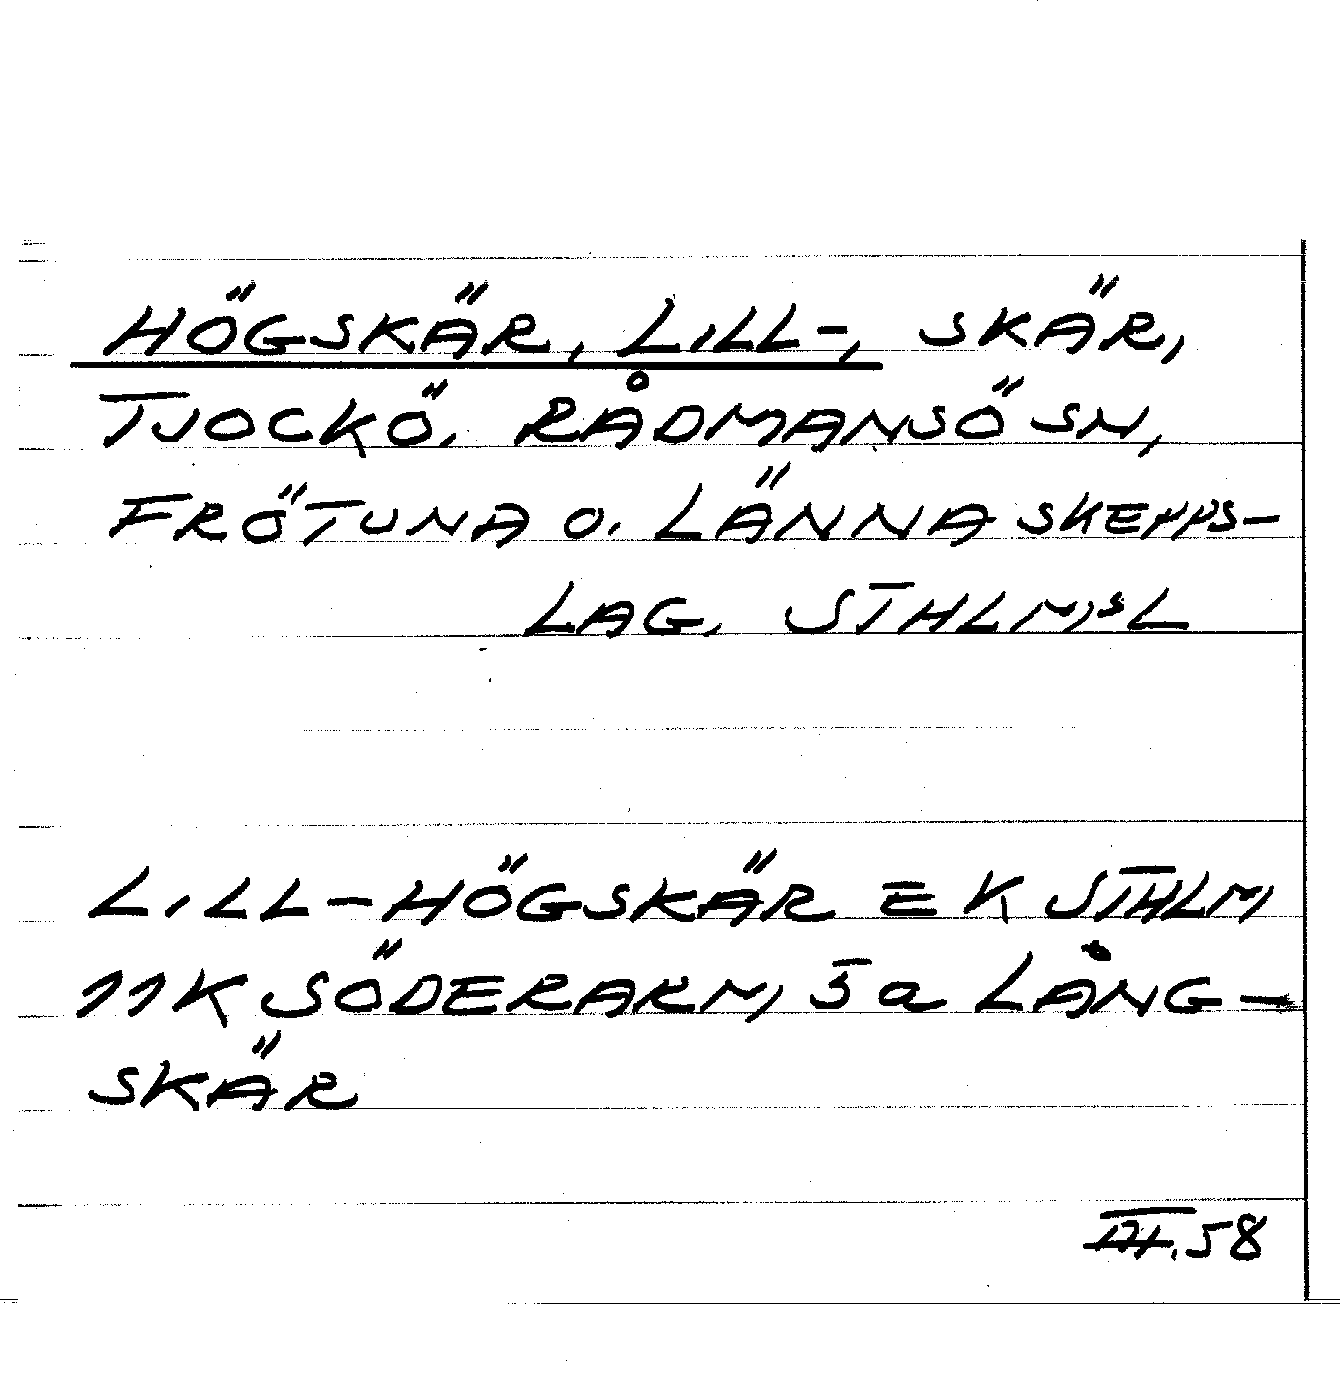 HÖGSKÄR, LILL-, SKÄR,
TJOCKÖ, RÅDMANSÖ SN,
FRÖTUNA O. LÄNNA SKEPPS-
LAG, STHLMSL
LILL-HÖGSKÄR EK STHLM
11K SÖDERARM, 5a LÅNG-
SKÄR
III.58